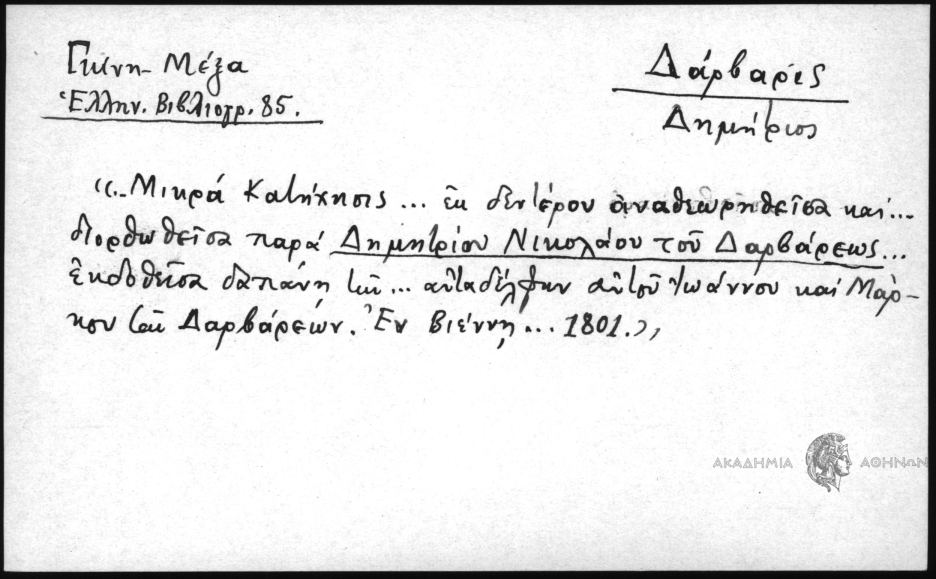 Γκίνη - Μέξα
Ἑλλην. Βιβλιογρ. 85.
Δάρβαρις
Δημήτριος
«... Μικρά Κατήχησις ... ἐκ δευτέρου ἀναθεωρηθεῖσα καί ...
διορθωθεῖσα παρά Δημητρίου Νικολάου τοῦ Δαρβάρεως ...
ἐκδοθεῖσα δαπάνῃ τῶν ... αὐταδέλφων αὐτοῦ Ἰωάννου καί Μάρ-
κου τῶν Δαρβάρεων. Ἐν Βιέννῃ ... 1801.»
ΑΚΑΔΗΜΙΑ ΑΘΗΝΩΝ